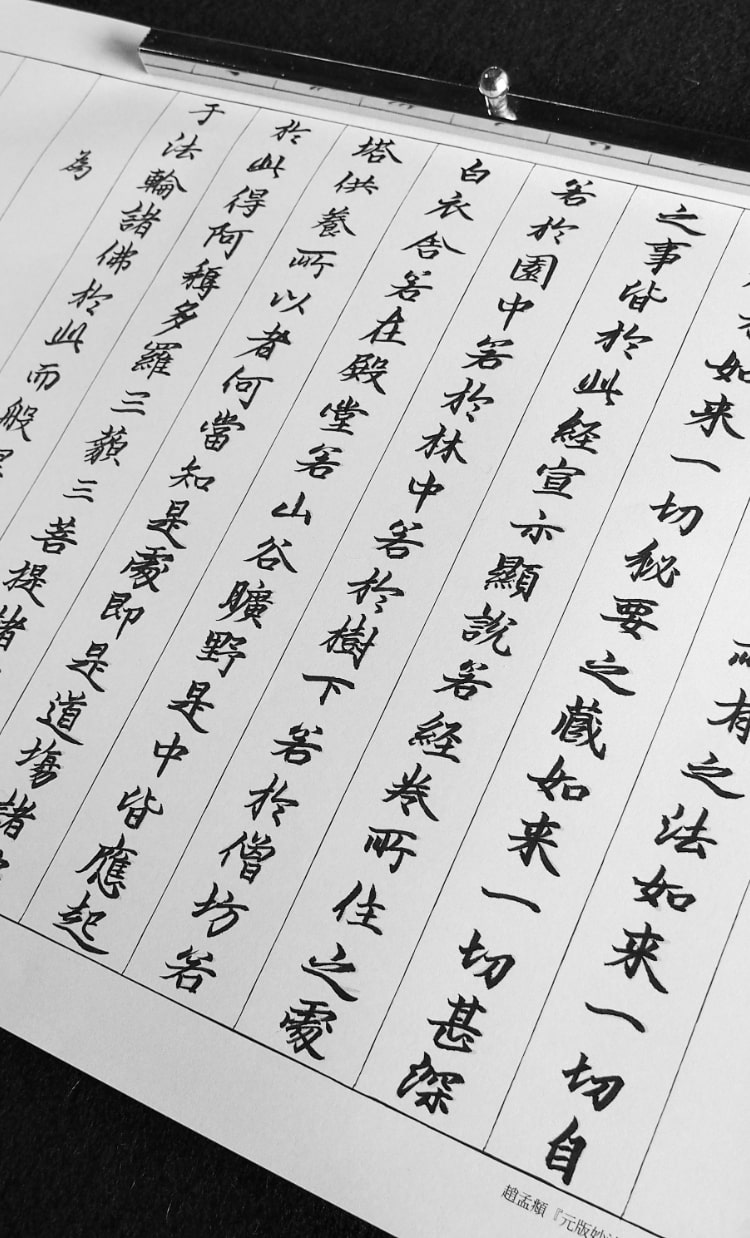 所有之法如来一切自
如来一切秘要之蔵如来一切甚深
之事皆於此経宣示顯説若経巻所住之處
若於園中若於林中若於樹下若於僧坊若
白衣舎若在殿堂若山谷曠野是中皆應起
塔供養所以者何當知是處即是道場諸
於此得阿耨多羅三藐三菩提諸
于法輪諸佛於此而般
為
趙孟頫『元版妙法